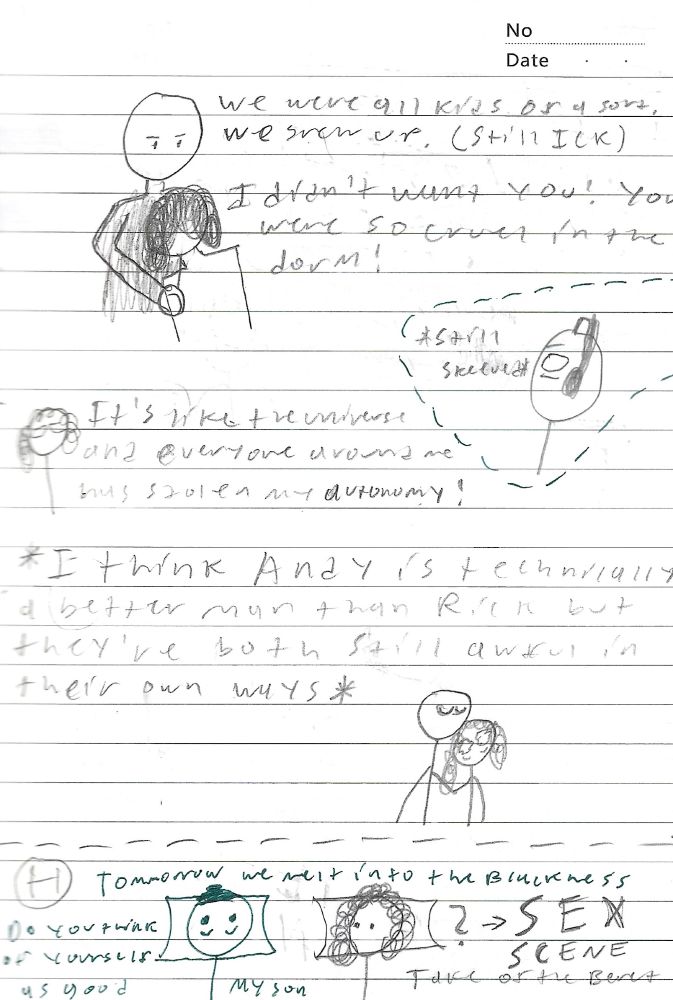 No
Date
We were all kids of a sort.
We grew up. (Still ICK)
I didn't want you! You
were so cruel in the
dorm!
*Still
skeeved*
It's like the universe
and everyone around me
has stolen my autonomy!
*I think Andy is technically
a better man than Rick but
they've both still awful in
their own ways*
H
Tomorrow we melt into the Blackness
Do you think
of yourself
as good
My son
? → SEX
SCENE
Take of the Beret